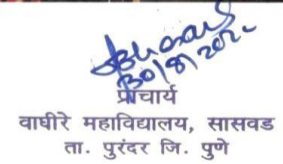 30/8/202
प्राचार्य
वाघीरे महाविद्यालय, सासवड
ता. पुरंदर जि. पुणे